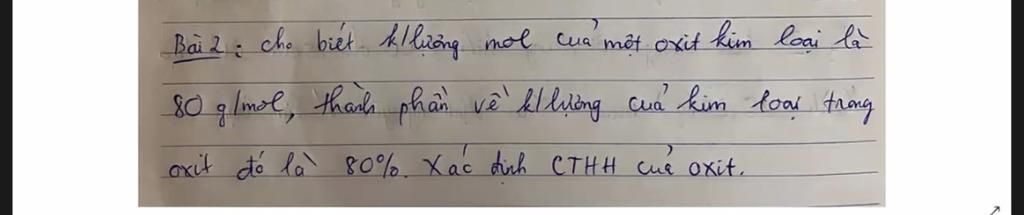 Bài 2: cho biết k/lượng mol của một oxit kim loại là
80 g/mol, thành phần về k/lượng của kim loại trong
oxit đó là 80%. Xác định CTHH của oxit.